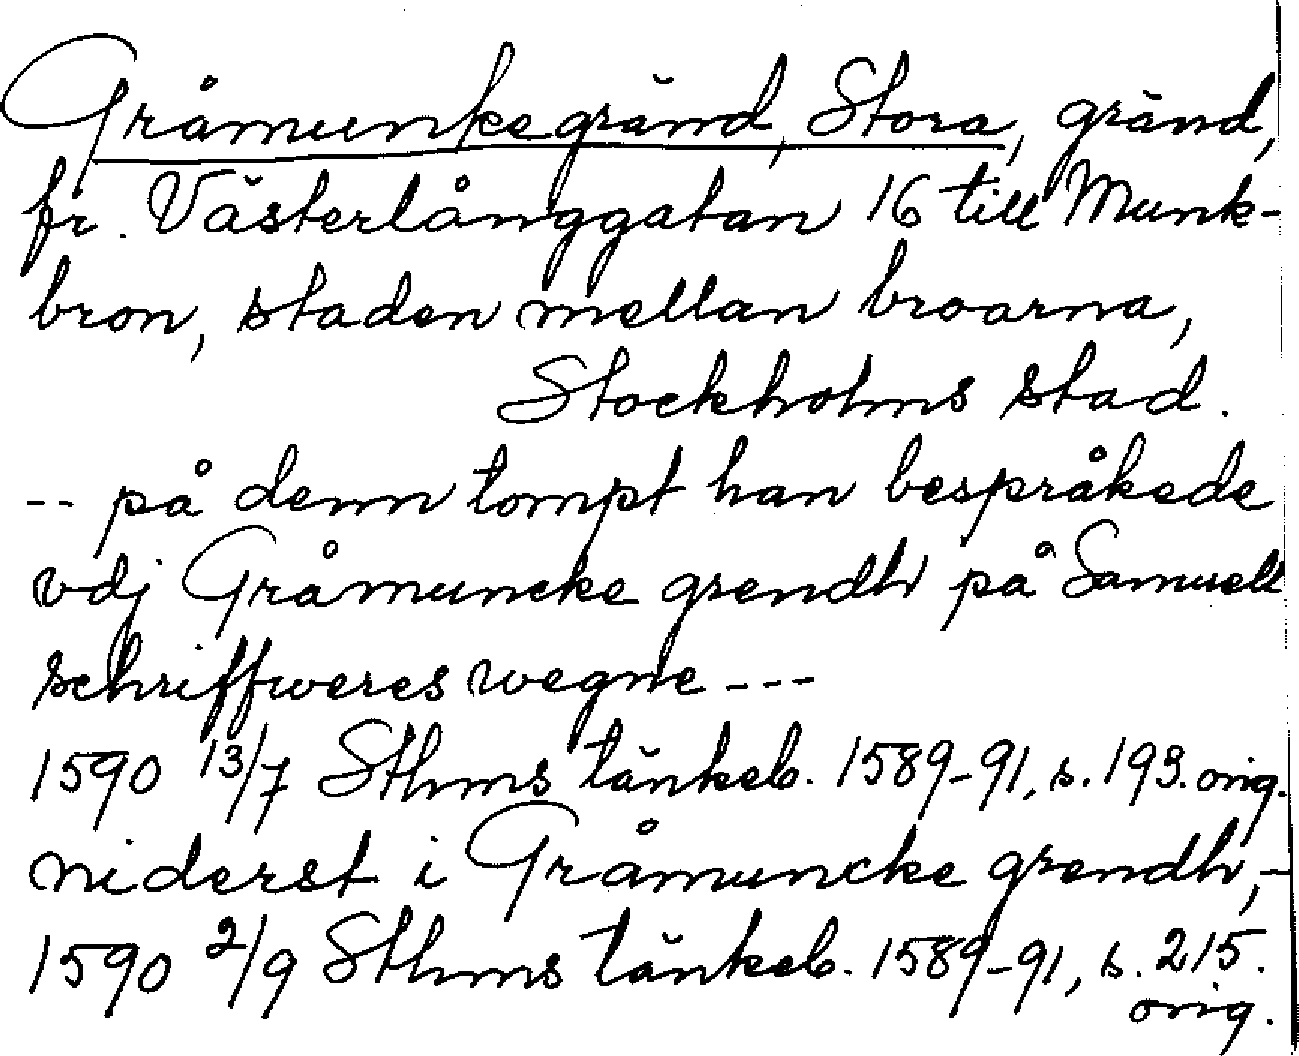 Gråmunkegränd, Stora, gränd,
fr. Västerlånggatan 16 till Munk-
bron, staden mellan broarna,
Stockholms stad.
-- på denn tompt han bespråkede
vdj Gråmuncke grendh på Samuell
schriffweres wegne ---
1590 13/7 Sthms tänkeb. 1589-91, s. 193. orig.
niderst i Gråmuncke grendh, -
1590 2/9 Sthms tänkeb. 1589-91, s. 215.
orig.